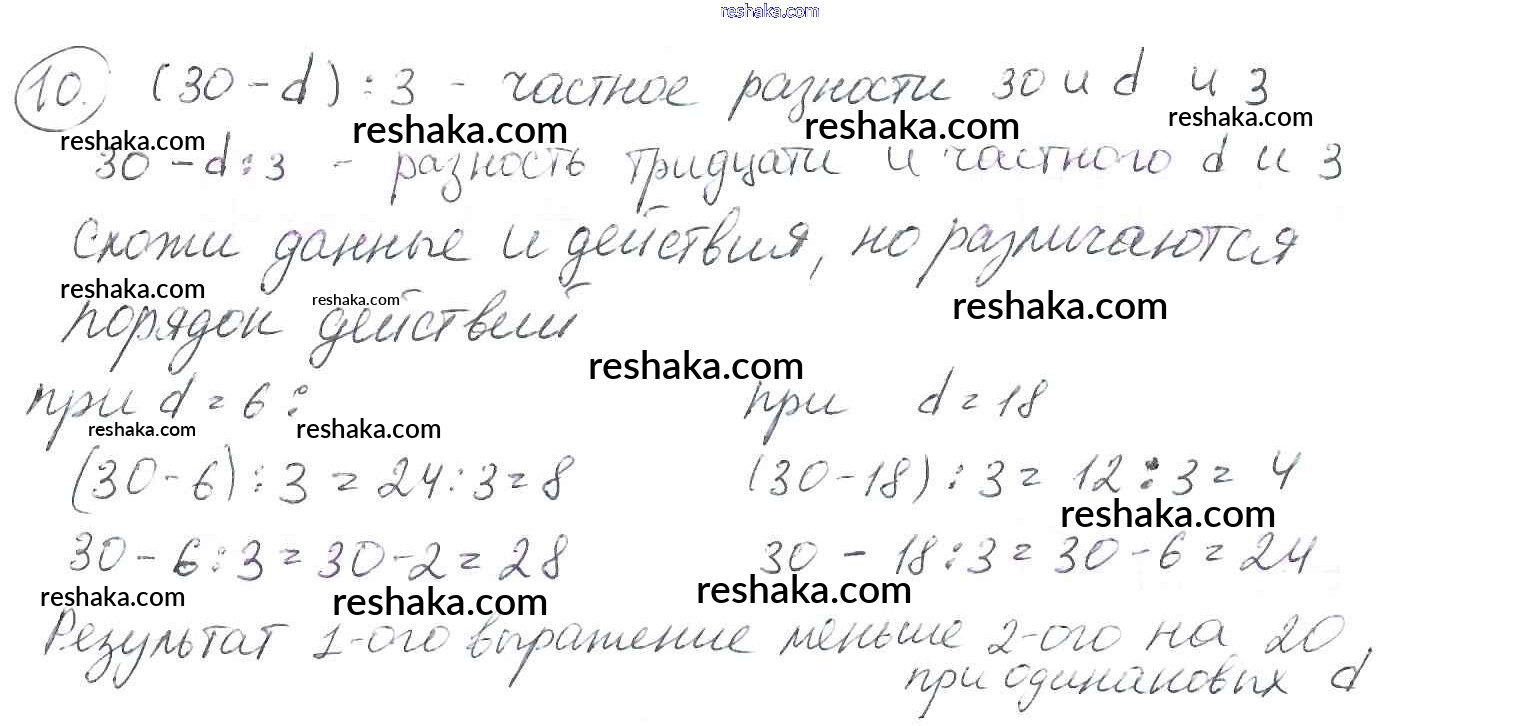 reshaka.com
10. (30-d):3 - частное разности 30 и d и 3
reshaka.com reshaka.com reshaka.com reshaka.com
30-d:3 - разность тридцати и частного d и 3
Схожи данные и действия, но различаются
reshaka.com reshaka.com reshaka.com
порядок действий
reshaka.com
при d=6: при d=18
reshaka.com reshaka.com
(30-6):3=24:3=8 (30-18):3=12:3=4
reshaka.com
30-6:3=30-2=28 30-18:3=30-6=24
reshaka.com reshaka.com reshaka.com
Результат 1-ого выражение меньше 2-ого на 20
при одинаковых d